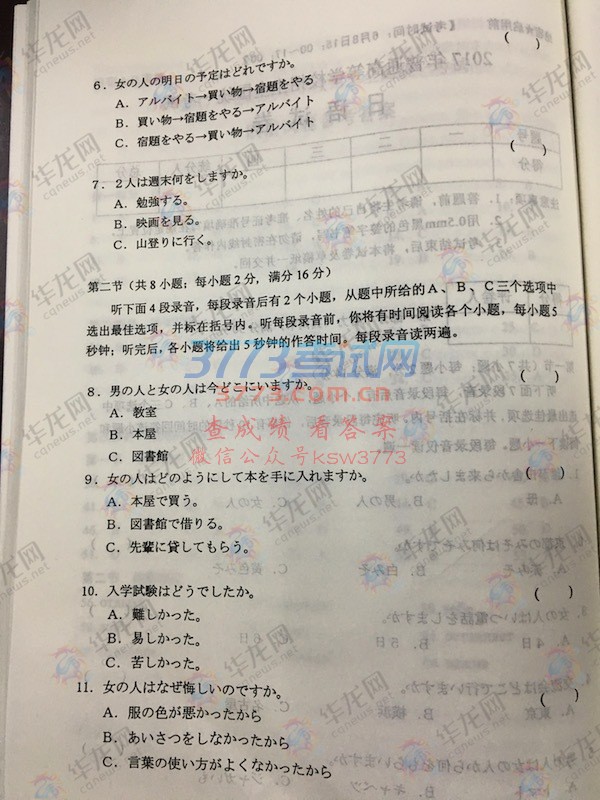 （　　）
6．女の人の明日の予定はどれですか。
A．アルバイト→買い物→宿題をやる
B．買い物→宿題をやる→アルバイト
C．宿題をやる→買い物→アルバイト
（　　）
7．2人は週末何をしますか。
A．勉強する。
B．映画を見る。
C．山登りに行く。
第二节（共8小题；每小题2分，满分16分）
听下面4段录音，每段录音后有2个小题，从题中所给的A、B、C三个选项中
选出最佳选项，并标在括号内。听每段录音前，你将有时间阅读各个小题，每小题5
秒钟；听完后，各小题将给出5秒钟的作答时间。每段录音读两遍。
3773考试网
3773.com.cn
查成绩 看答案
微信公众号ksw3773
8．男の人と女の人は今どこにいますか。（　　）
A．教室
B．本屋
C．図書館
9．女の人はどのようにして本を手に入れますか。（　　）
A．本屋で買う。
B．図書館で借りる。
C．先輩に貸してもらう。
10．入学試験はどうでしたか。（　　）
A．難しかった。
B．易しかった。
C．苦しかった。
11．女の人はなぜ悔しいのですか。（　　）
A．服の色が悪かったから
B．あいさつをしなかったから
C．言葉の使い方がよくなかったから
华龙网
cqnews.net